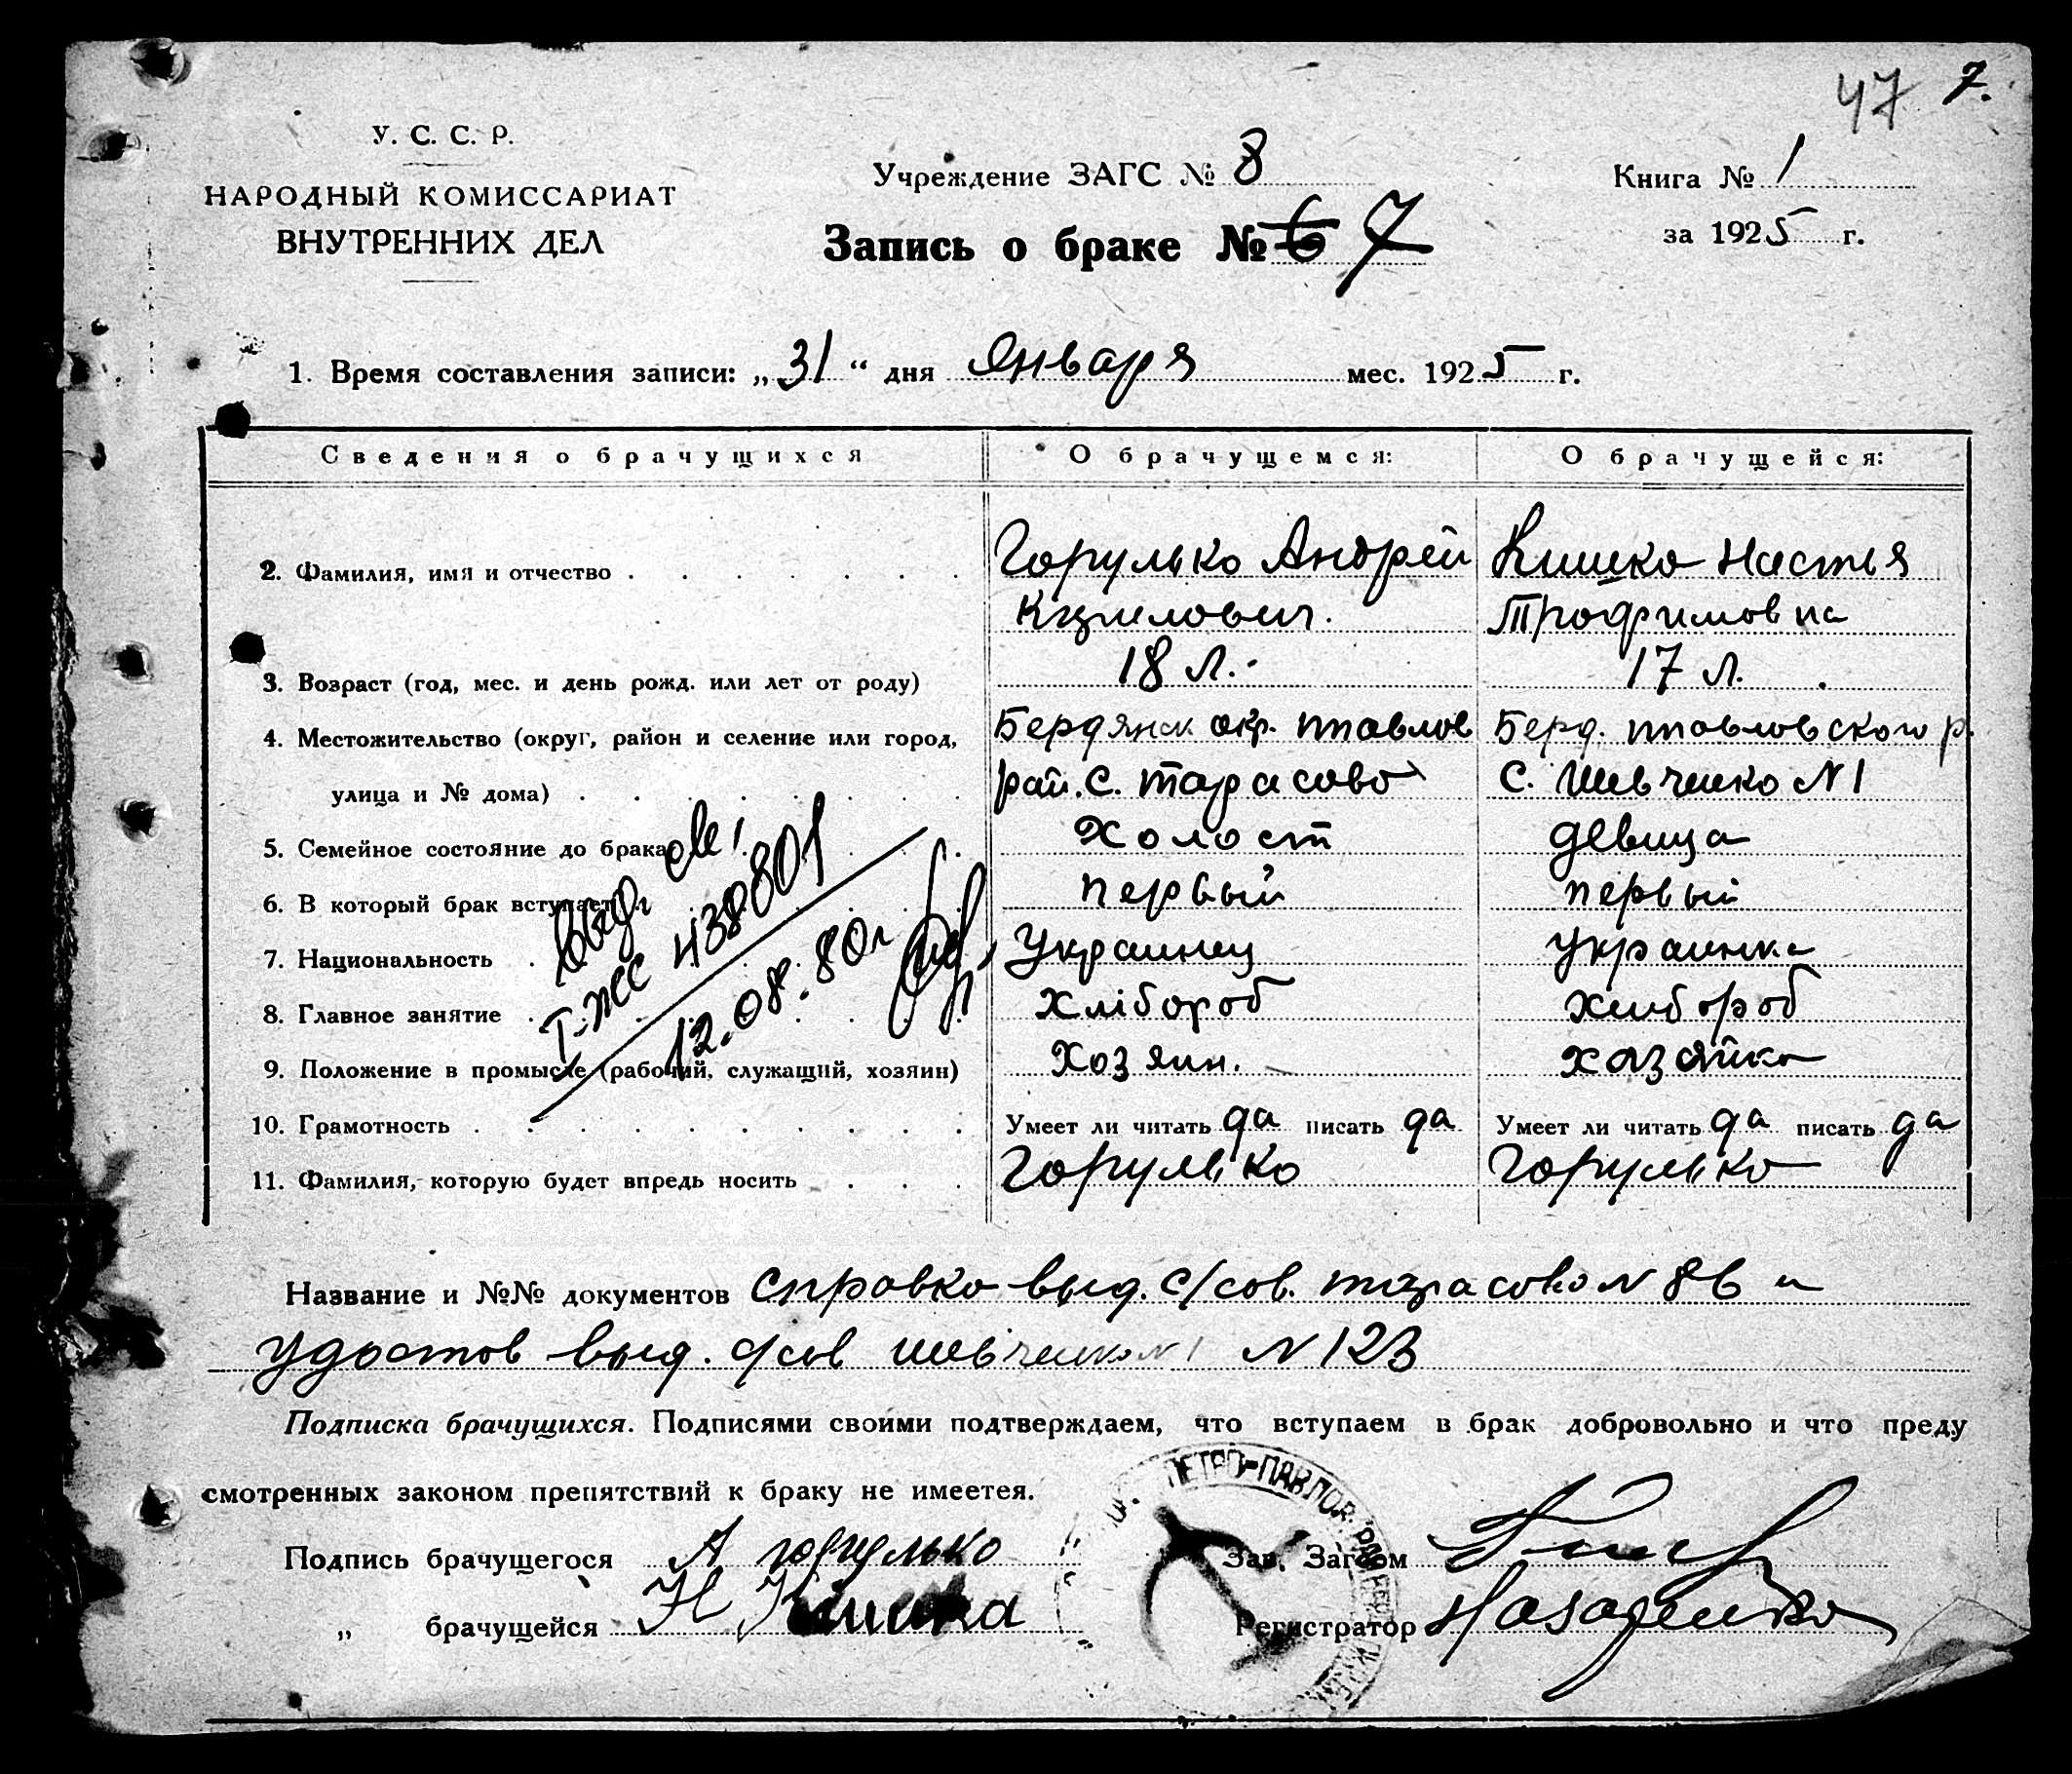 47 7.
У. С. С. Р.
НАРОДНЫЙ КОМИССАРИАТ
ВНУТРЕННИХ ДЕЛ
Учреждение ЗАГС № 8
Запись о браке № 6 7
Книга № 1
за 1925 г.
1. Время составления записи: „31“ дня Января мес. 1925 г.
Сведения о брачущихся О брачущемся: О брачущейся:
2. Фамилия, имя и отчество Горулько Андрей Кишко Настья
Трофимовна
3. Возраст (год, мес. и день рожд. или лет от роду) 18 л. 17 л.
4. Местожительство (округ, район и селение или город, Бердянск окр. ппавлов Берд. ппавловского р.
улица и № дома) рай. с. тарасово с. Шевченко N 1
5. Семейное состояние до брака Холост девица
6. В который брак вступает первый первый
7. Национальность Украинец украинка
8. Главное занятие Хлібороб хлибороб
9. Положение в промысле (рабочий, служащий, хозяин) Хозяин. хазяйка
10. Грамотность Умеет ли читать да писать да Умеет ли читать да писать да
11. Фамилия, которую будет впредь носить Горулько Горулько
Выд.
438801
12.08.80г
Название и №№ документов Справка выд. с/сов. тарасово N 86 и
удостов выд. с/сов шевченко N 1 N 123
Подписка брачущихся. Подписями своими подтверждаем, что вступаем в брак добровольно и что преду
смотренных законом препятствий к браку не имеетея.
Подпись брачущегося А горулько
„ брачущейся Н Кишка
Зав. Загсом
Регистратор
ПЕТРО-ПАВЛОВ.